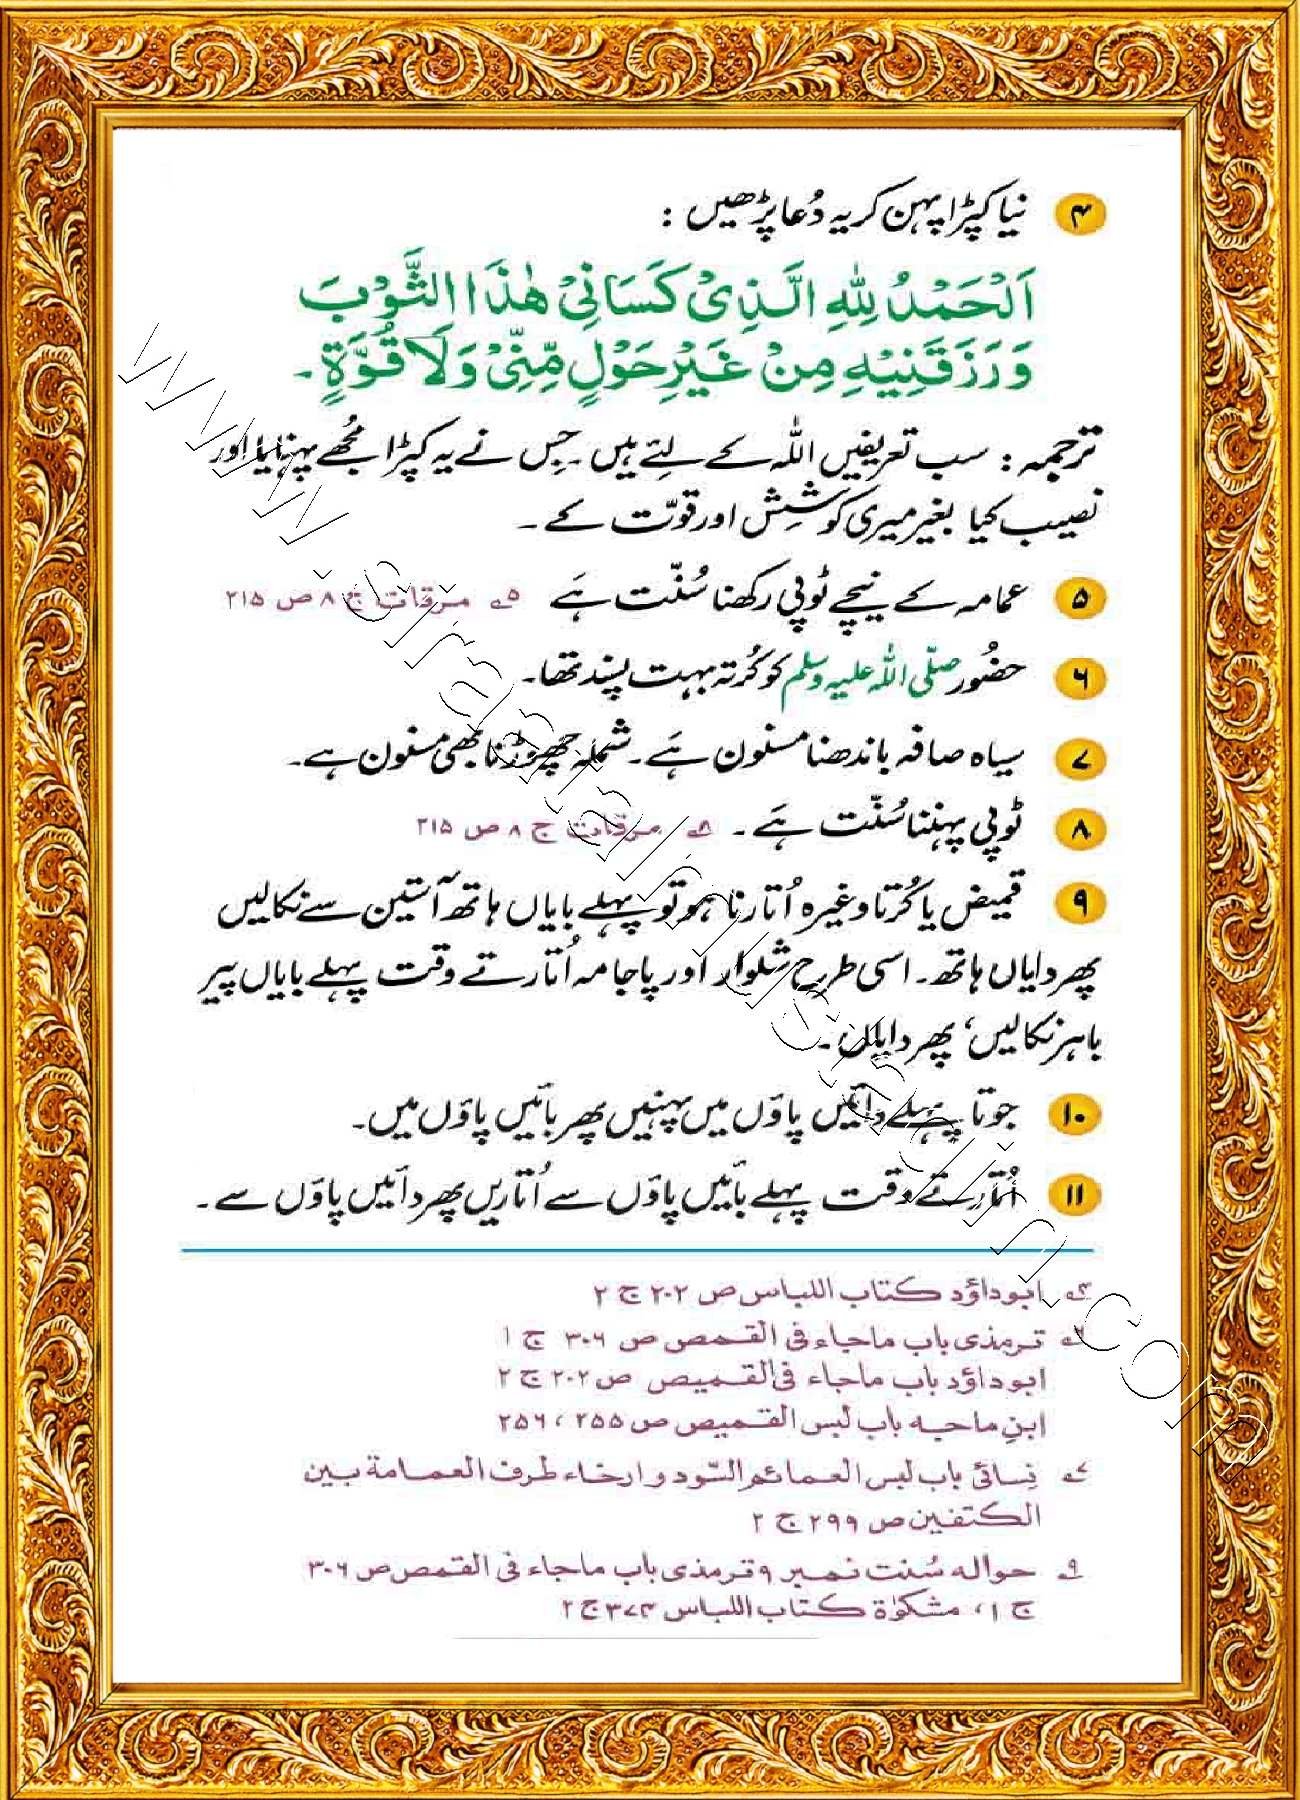 ۴ نیا کپڑا پہن کر یہ دُعا پڑھیں :
اَلْحَمْدُ لِلّٰهِ الَّذِیْ كَسَانِیْ هٰذَا الثَّوْبَ
وَرَزَقَنِیْهِ مِنْ غَیْرِ حَوْلٍ مِّنِّیْ وَلَا قُوَّةٍ۔
ترجمہ : سب تعریفیں اللہ کے لئے ہیں جس نے یہ کپڑا مجھے پہنایا اور
نصیب کیا بغیر میری کوشِش اور قوّت کے ۔
۵ عمامہ کے نیچے ٹوپی رکھنا سُنّت ہَے ۵؎ مرقات ج ۸ ص ۲۱۵
۶ حضُور صلّی اللہ علیہ وسلم کو کُرتہ بہت پسند تھا۔
۷ سیاہ صافہ باندھنا مسنون ہَے ۔ شملہ چھوڑنا بھی مسنون ہے۔
۸ ٹوپی پہننا سُنّت ہَے ۔ ۸؎ مرقات ج ۸ ص ۲۱۵
۹ قمیض یا کُرتا وغیرہ اُتارنا ہو تو پہلے بایاں ہاتھ آستین سے نکالیں
پھر دایاں ہاتھ۔ اسی طرح شلوار اور پاجامہ اُتارتے وقت پہلے بایاں پیر
باہر نکالیں، پھر دایاں ۔
۱۰ جوتا پہلے دائیں پاؤں میں پہنیں پھر بائیں پاؤں میں۔
۱۱ اُتارتے وقت پہلے بائیں پاؤں سے اُتاریں پھر دائیں پاؤں سے ۔
۴؎ ابوداؤد کتاب اللباس ص ۲۰۲ ج ۲
۶؎ ترمذی باب ماجاء فی القمص ص ۳۰۶ ج ۱
ابوداؤد باب ماجاء فی القمیص ص ۲۰۲ ج ۲
ابنِ ماجہ باب لبس القمیص ص ۲۵۵ ، ۲۵۶
۷؎ نِسائی باب لبس العمائم السّود و ارخاء طرف العمامة بین
الکتفین ص ۲۹۹ ج ۲
۹؎ حوالہ سُنت نمبر ۹ ترمذی باب ماجاء فی القمص ص ۳۰۶
ج ۱، مشکوٰة کتاب اللباس ۳۷۴ ج ۲
www.sirajalmustaqim.com